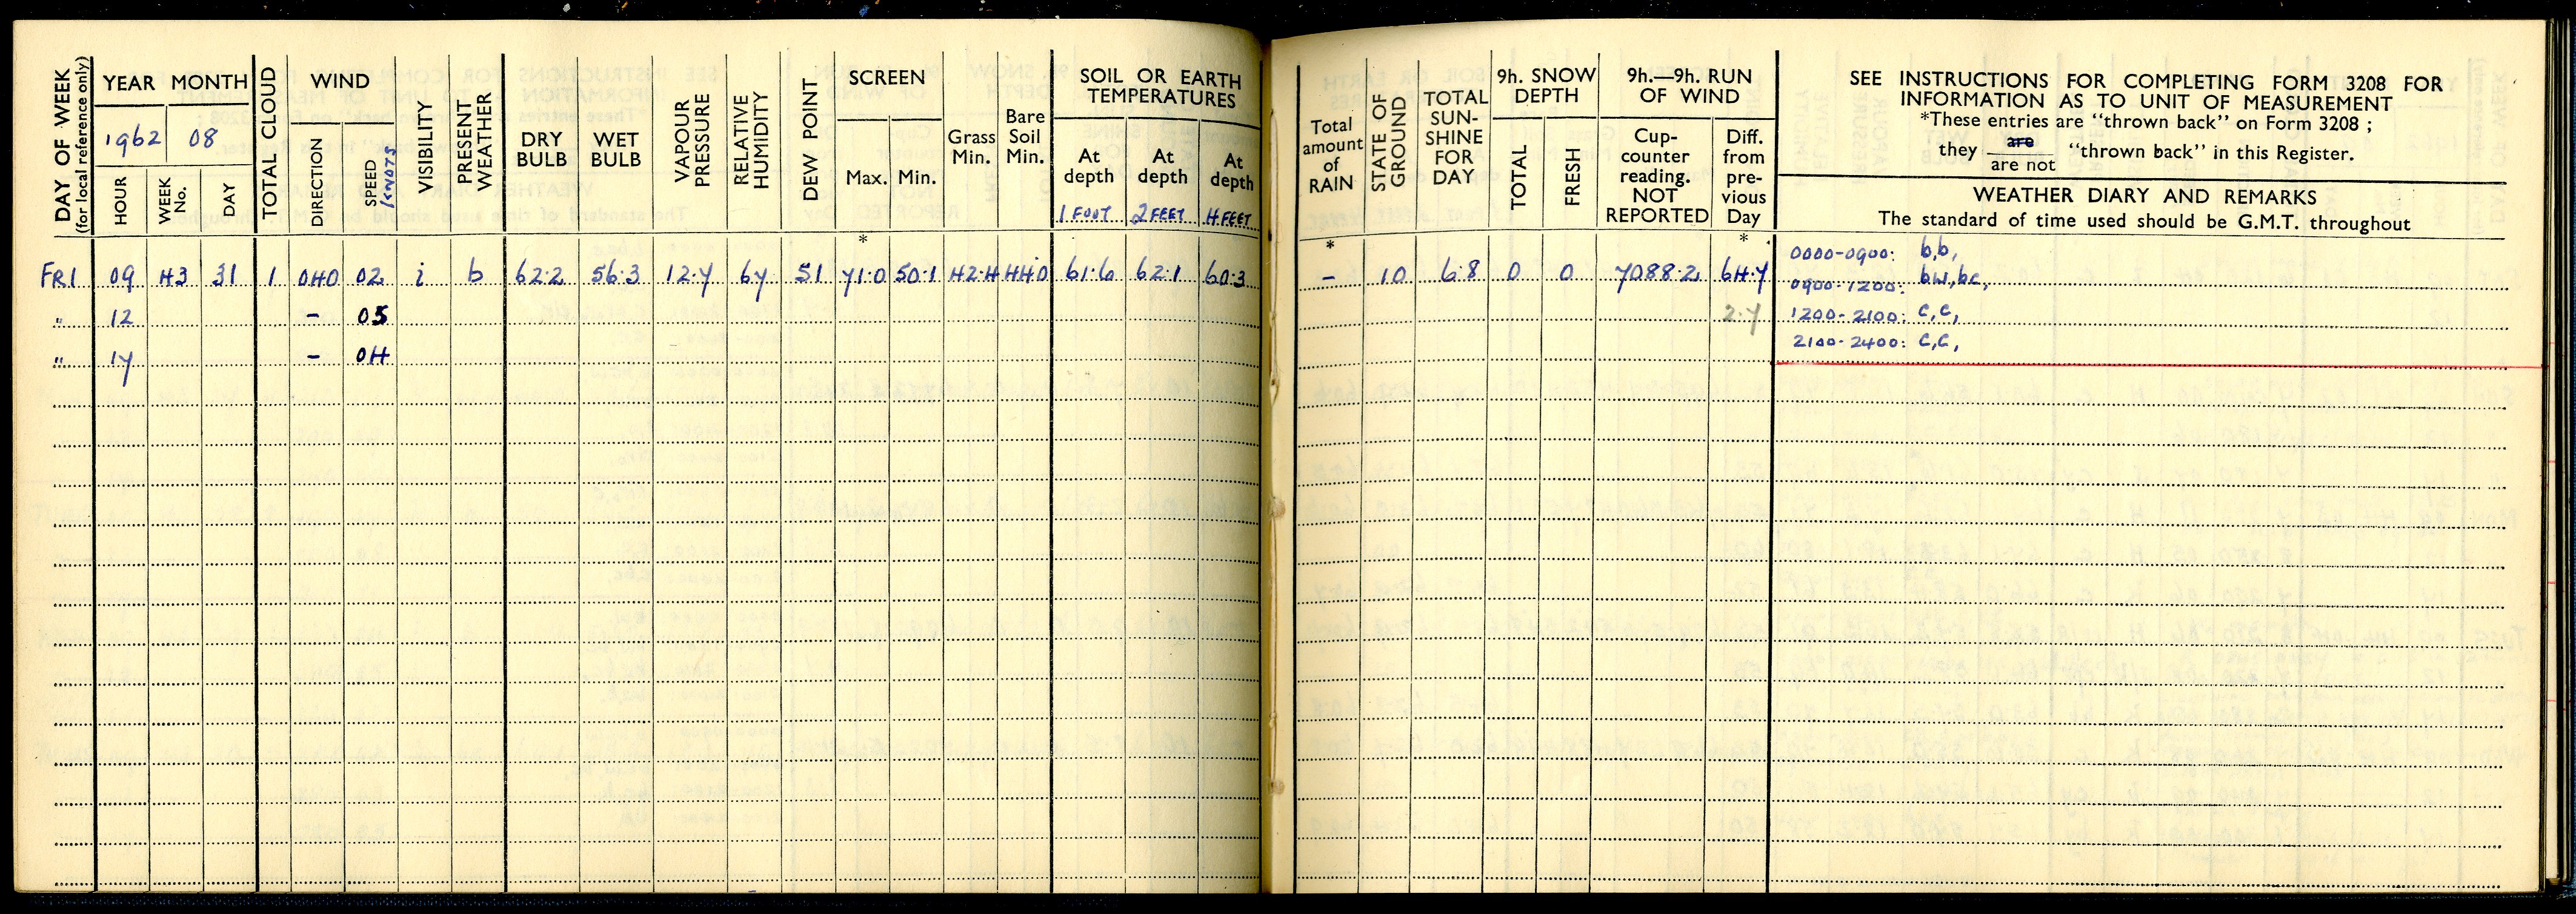 DAY OF WEEK
(for local reference only)
YEAR MONTH
1962 08
HOUR
WEEK No.
DAY
TOTAL CLOUD
WIND
DIRECTION
SPEED
KNOTS
VISIBILITY
PRESENT WEATHER
DRY BULB
WET BULB
VAPOUR PRESSURE
RELATIVE HUMIDITY
DEW POINT
SCREEN
Max. Min.
*
Grass Min.
Bare Soil Min.
SOIL OR EARTH TEMPERATURES
At depth 1 FOOT
At depth 2 FEET
At depth 4 FEET
Total amount of RAIN
*
STATE OF GROUND
TOTAL SUN-SHINE FOR DAY
9h. SNOW DEPTH
TOTAL
FRESH
9h.—9h. RUN OF WIND
Cup-counter reading. NOT REPORTED
Diff. from pre-vious Day
*
SEE INSTRUCTIONS FOR COMPLETING FORM 3208 FOR
INFORMATION AS TO UNIT OF MEASUREMENT
*These entries are "thrown back" on Form 3208 ;
they are
are not "thrown back" in this Register.
WEATHER DIARY AND REMARKS
The standard of time used should be G.M.T. throughout
FRI 09 43 31 1 040 02 i b 62.2 56.3 12.7 67 51 71.0 50.1 42.4 44.0 61.6 62.1 60.3 – 10 6.8 0 0 7088.2 64.7
0000-0900: b,b,
0900-1200: bw,bc,
" 12 – 05 2.7
1200-2100: c,c,
" 17 – 04
2100-2400: c,c,